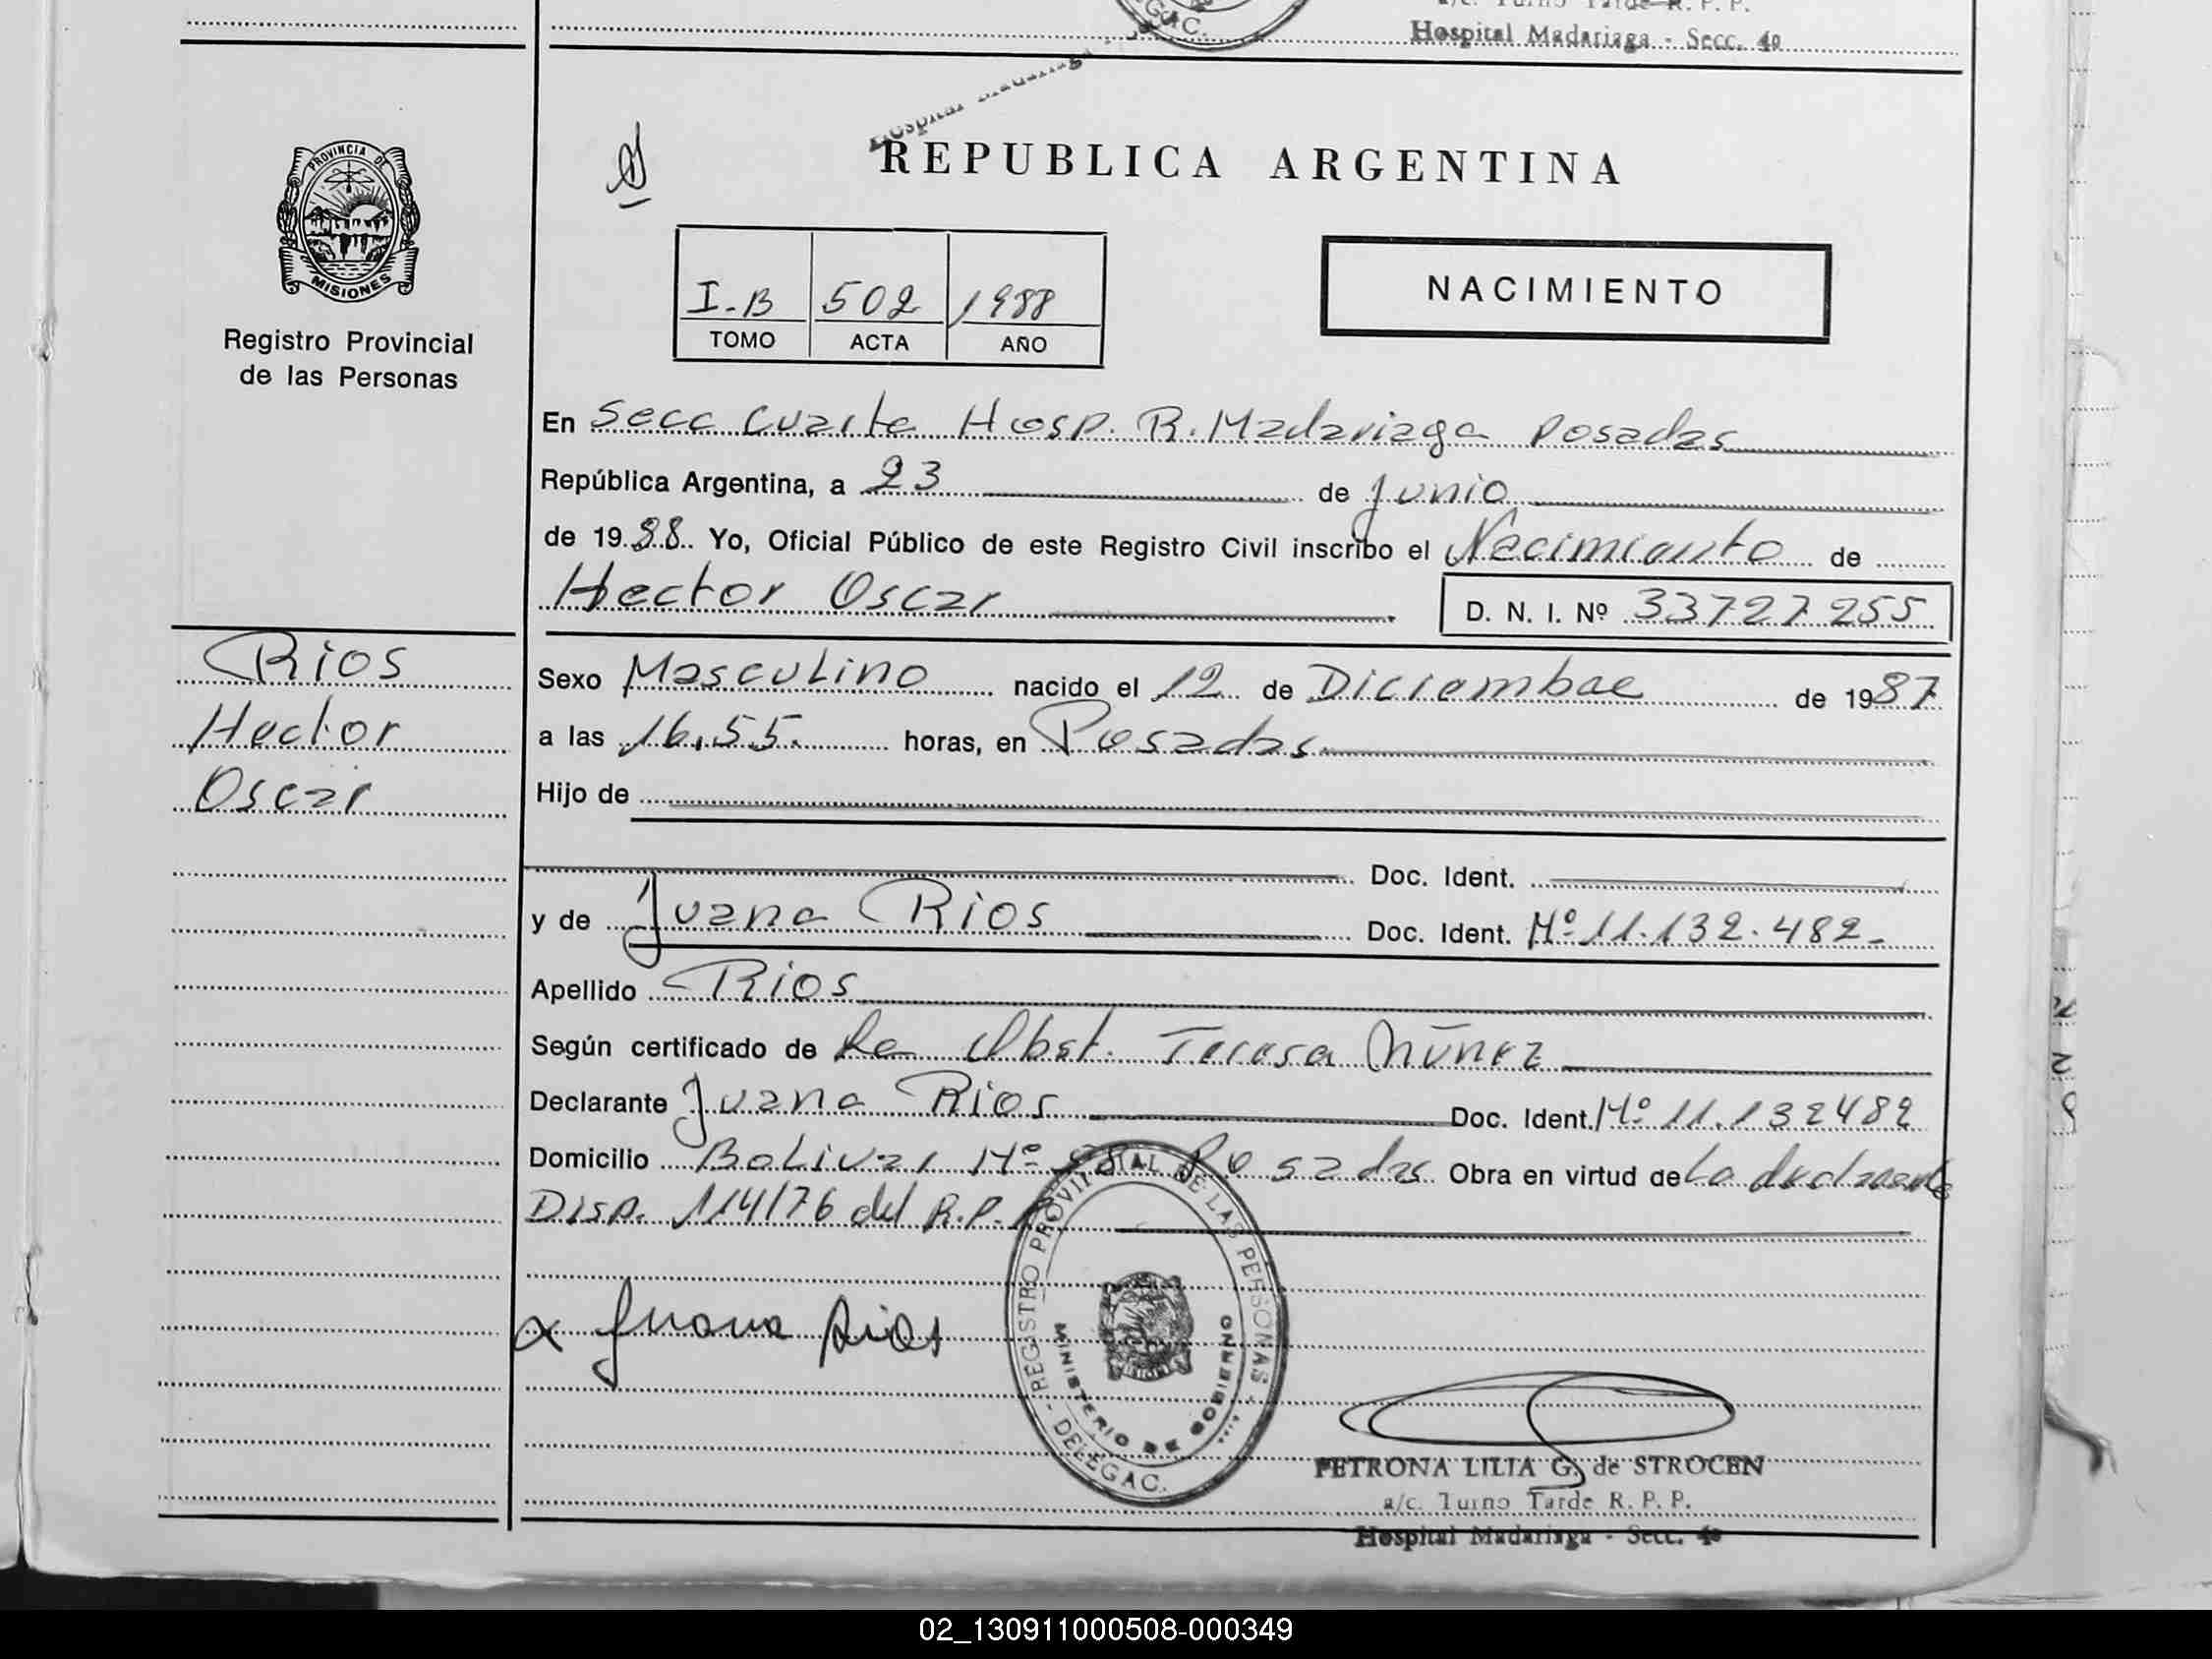 a/c. Turno Tarde R. P. P.
Hospital Madariaga - Secc. 4º
GAC.
Hospital Madariaga
PROVINCIA DE
MISIONES
Registro Provincial
de las Personas
REPUBLICA ARGENTINA
I-B 502 1988
TOMO ACTA AÑO
NACIMIENTO
En Secc Cuarta Hosp. R. Madariaga Posadas
República Argentina, a 23 de Junio
de 1988. Yo, Oficial Público de este Registro Civil inscribo el Nacimiento de
Hector Oscar D. N. I. Nº 33727255
Rios
Hector
Oscar
Sexo Masculino nacido el 12 de Diciembre de 1987
a las 16,55. horas, en Posadas
Hijo de
Doc. Ident.
y de Juana Rios Doc. Ident. Nº 11.132.482-
Apellido Rios
Según certificado de la Obst. Teresa Núñez
Declarante Juana Rios Doc. Ident. Nº 11.132482
Domicilio Bolivar Nº Posadas Obra en virtud de La declarante
Disp. 114/76 del R.P.
x Juana Rios
REGISTRO PROVINCIAL DE LAS PERSONAS - DELEGAC.
MINISTERIO DE GOBIERNO
PETRONA LILIA G. de STROCEN
a/c. Turno Tarde R. P. P.
Hospital Madariaga - Secc. 4º
02_130911000508-000349